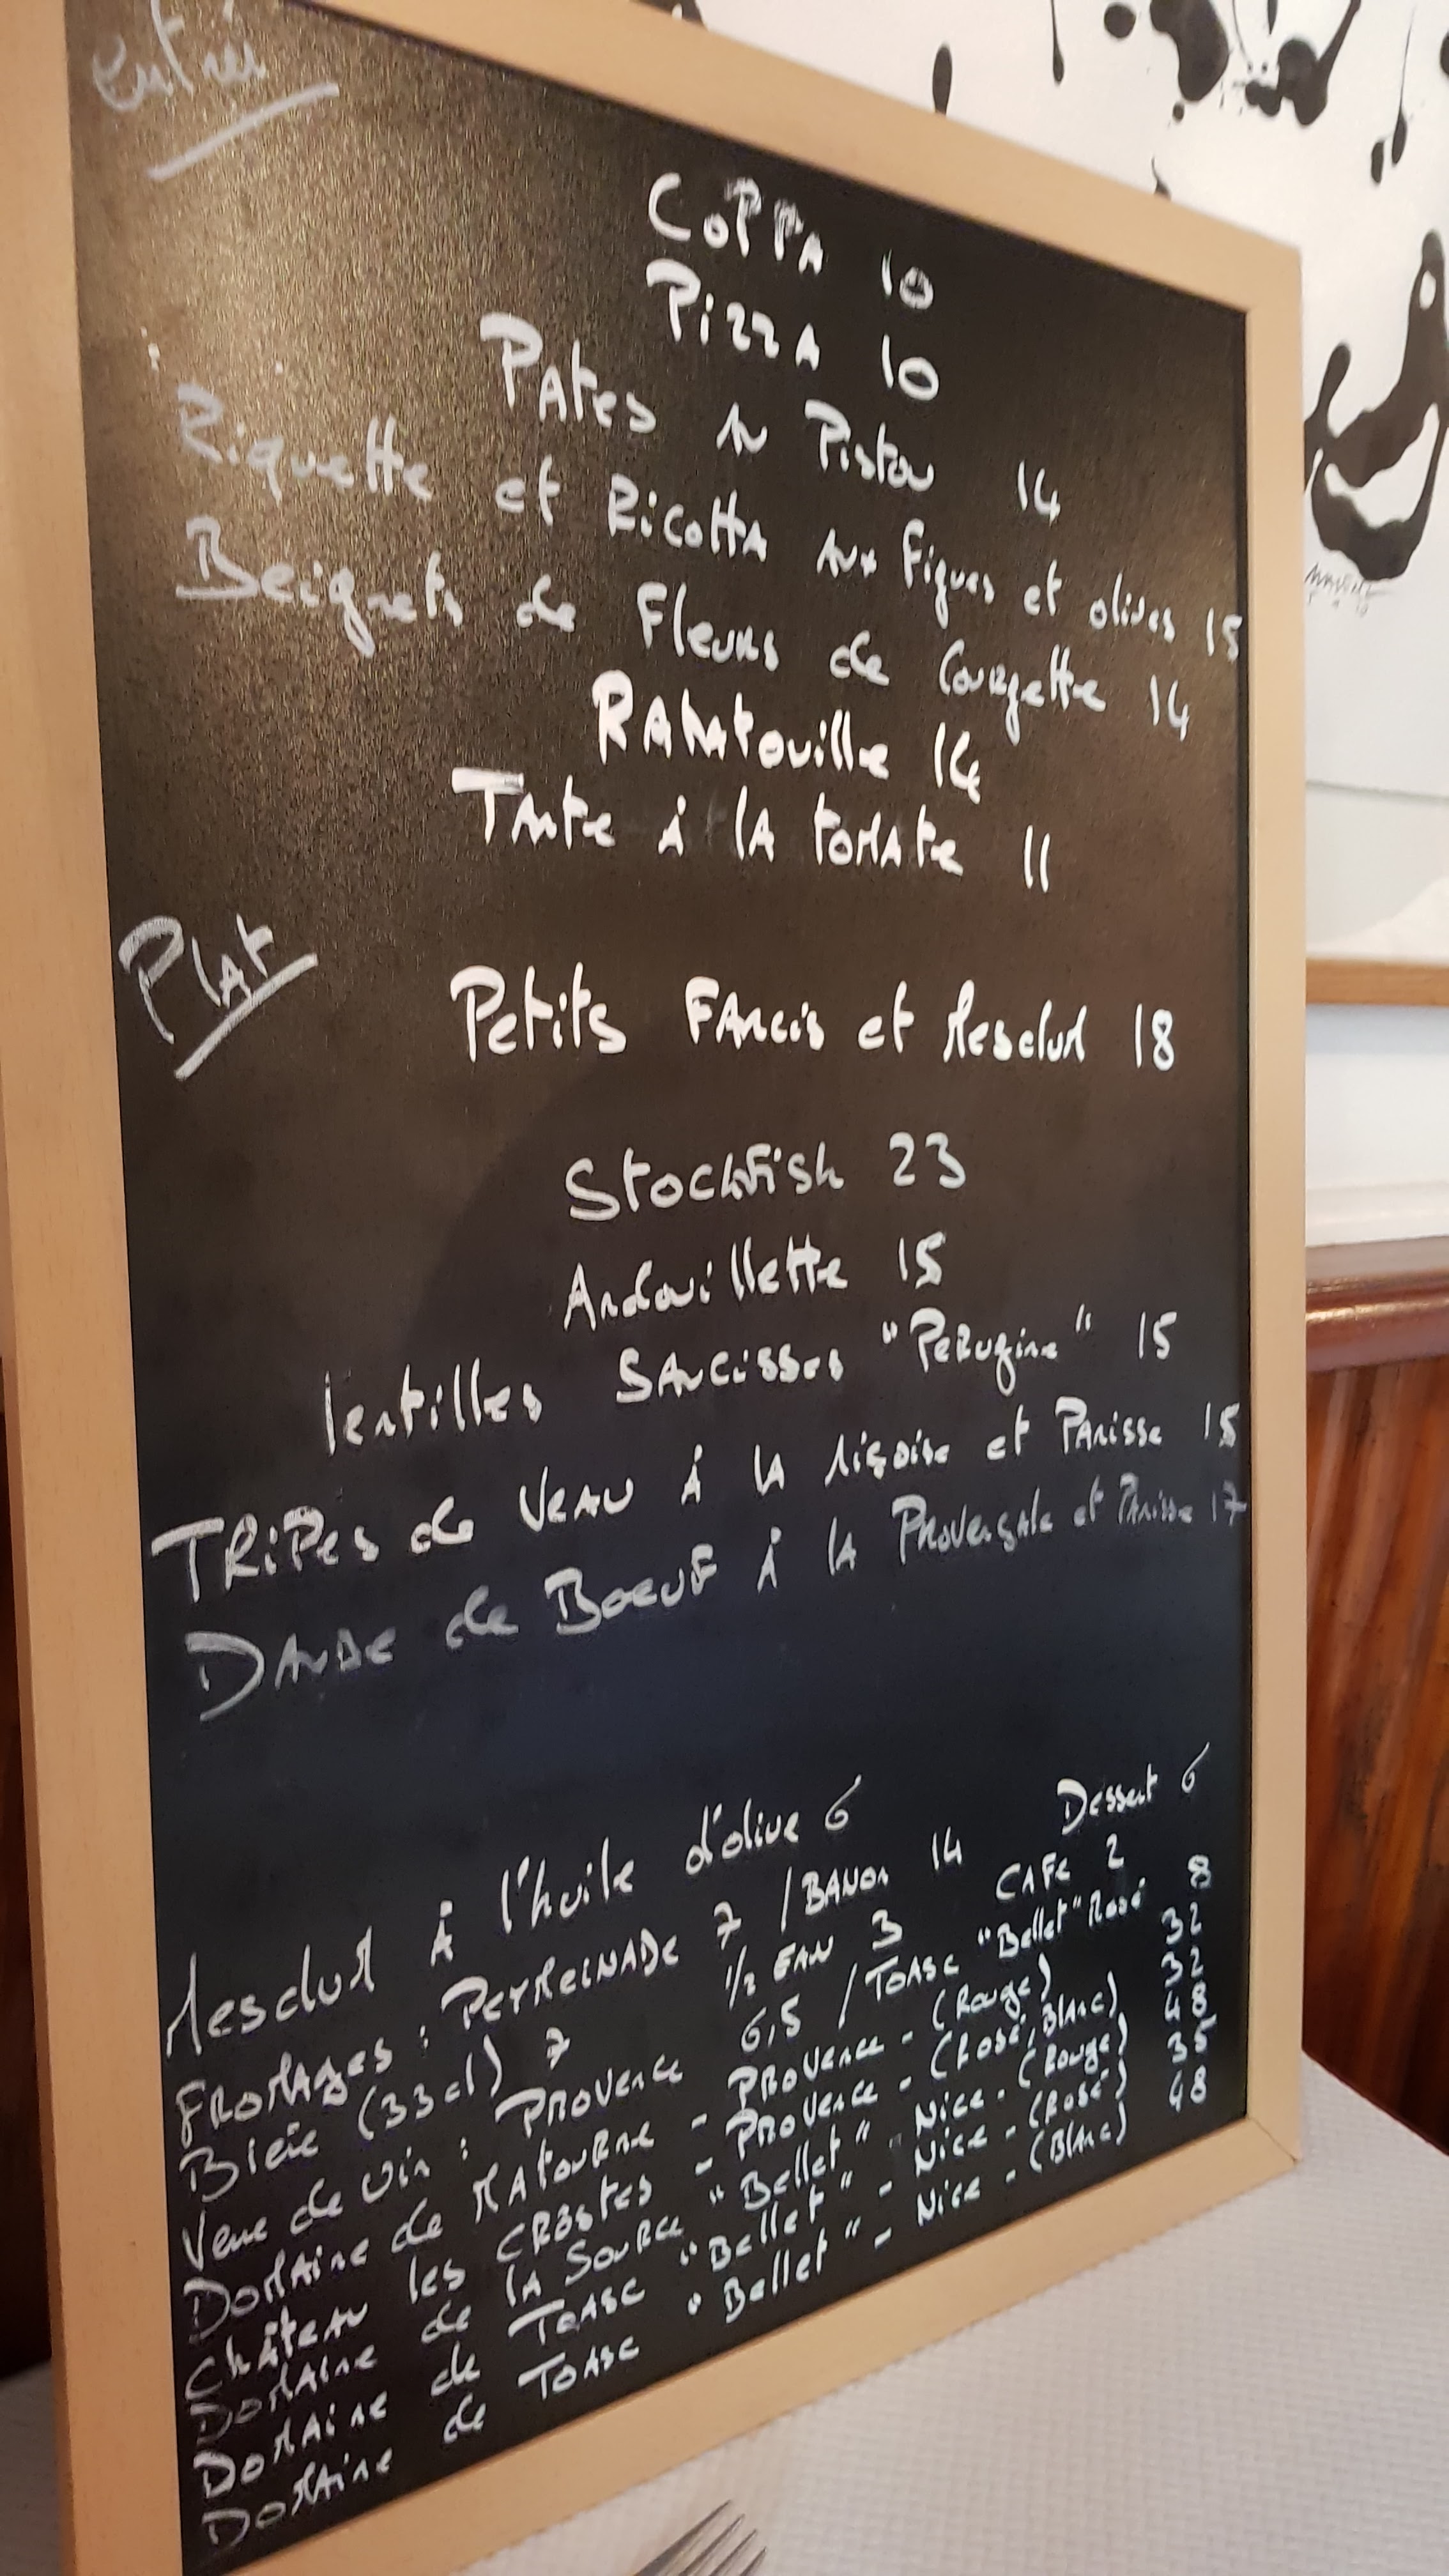 entrée
COPPA 10
PIZZA 10
PATES AU Pistou 14
Riquette et Ricotta Aux figues et olives 15
Beignets de Fleurs de Courgette 14
RATATouille 14
TARTe à la tomate 11
PLAt
Petits FARcis et Mesclun 18
Stockfish 23
Andouillette 15
lentilles SAUCisses "PeRugine" 15
TRiPes de VEAU à la niçoise et PAnisse 15
DAUBE de BOEUF à la PROVençale et PAnisse 17
Dessert 6
Mesclun à l'huile d'olive 6
CAFE 2
FROMAges : 7 / BANON 14
Bière (33cl) 7 1/2 EAU 3
Verre de vin : PROVence 6,5 / TOASC "Bellet" Rosé 8
DOMAine de MATOURNe - PROVence - (Rouge) 32
Château les CROStes - PROVence - (Rosé, BlAnc) 32
DOMAine de lA SOURCe "Bellet" - Nice - (Rouge) 48
DOMAine de TOASC "Bellet" - Nice - (Rosé) 35
DOMAine de TOASC "Bellet" - Nice - (BlAnc) 48